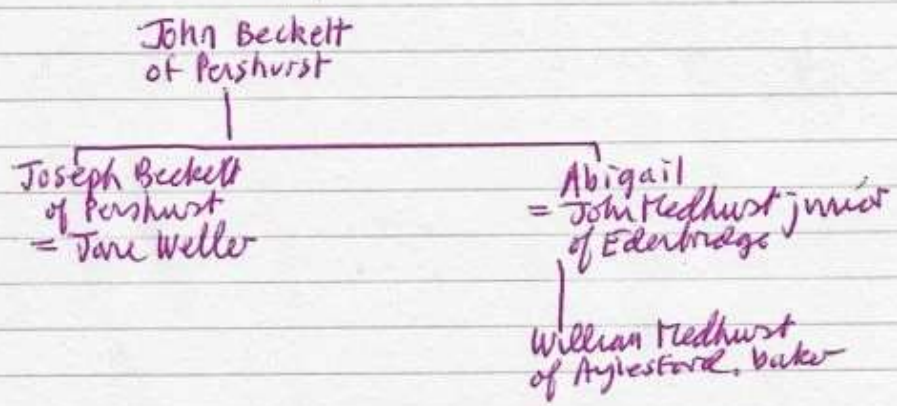 John Beckett
of Penshurst
Joseph Beckett
of Penshurst
= Jane Weller
Abigail
= John Medhurst junior
of Edenbridge
William Medhurst
of Aylesford, baker